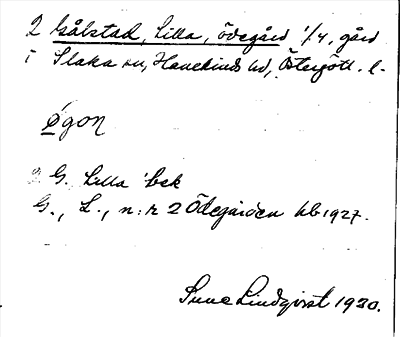 2 Gålstad, Lilla, ödegård 1/4, gård
i Slaka sn, Hanekinds hd, Östergötl. l-
øgon
2 G. Lilla 'bek
G., L., n:r 2 Ödegården hb 1927.
Sune Lindqvist 1930.